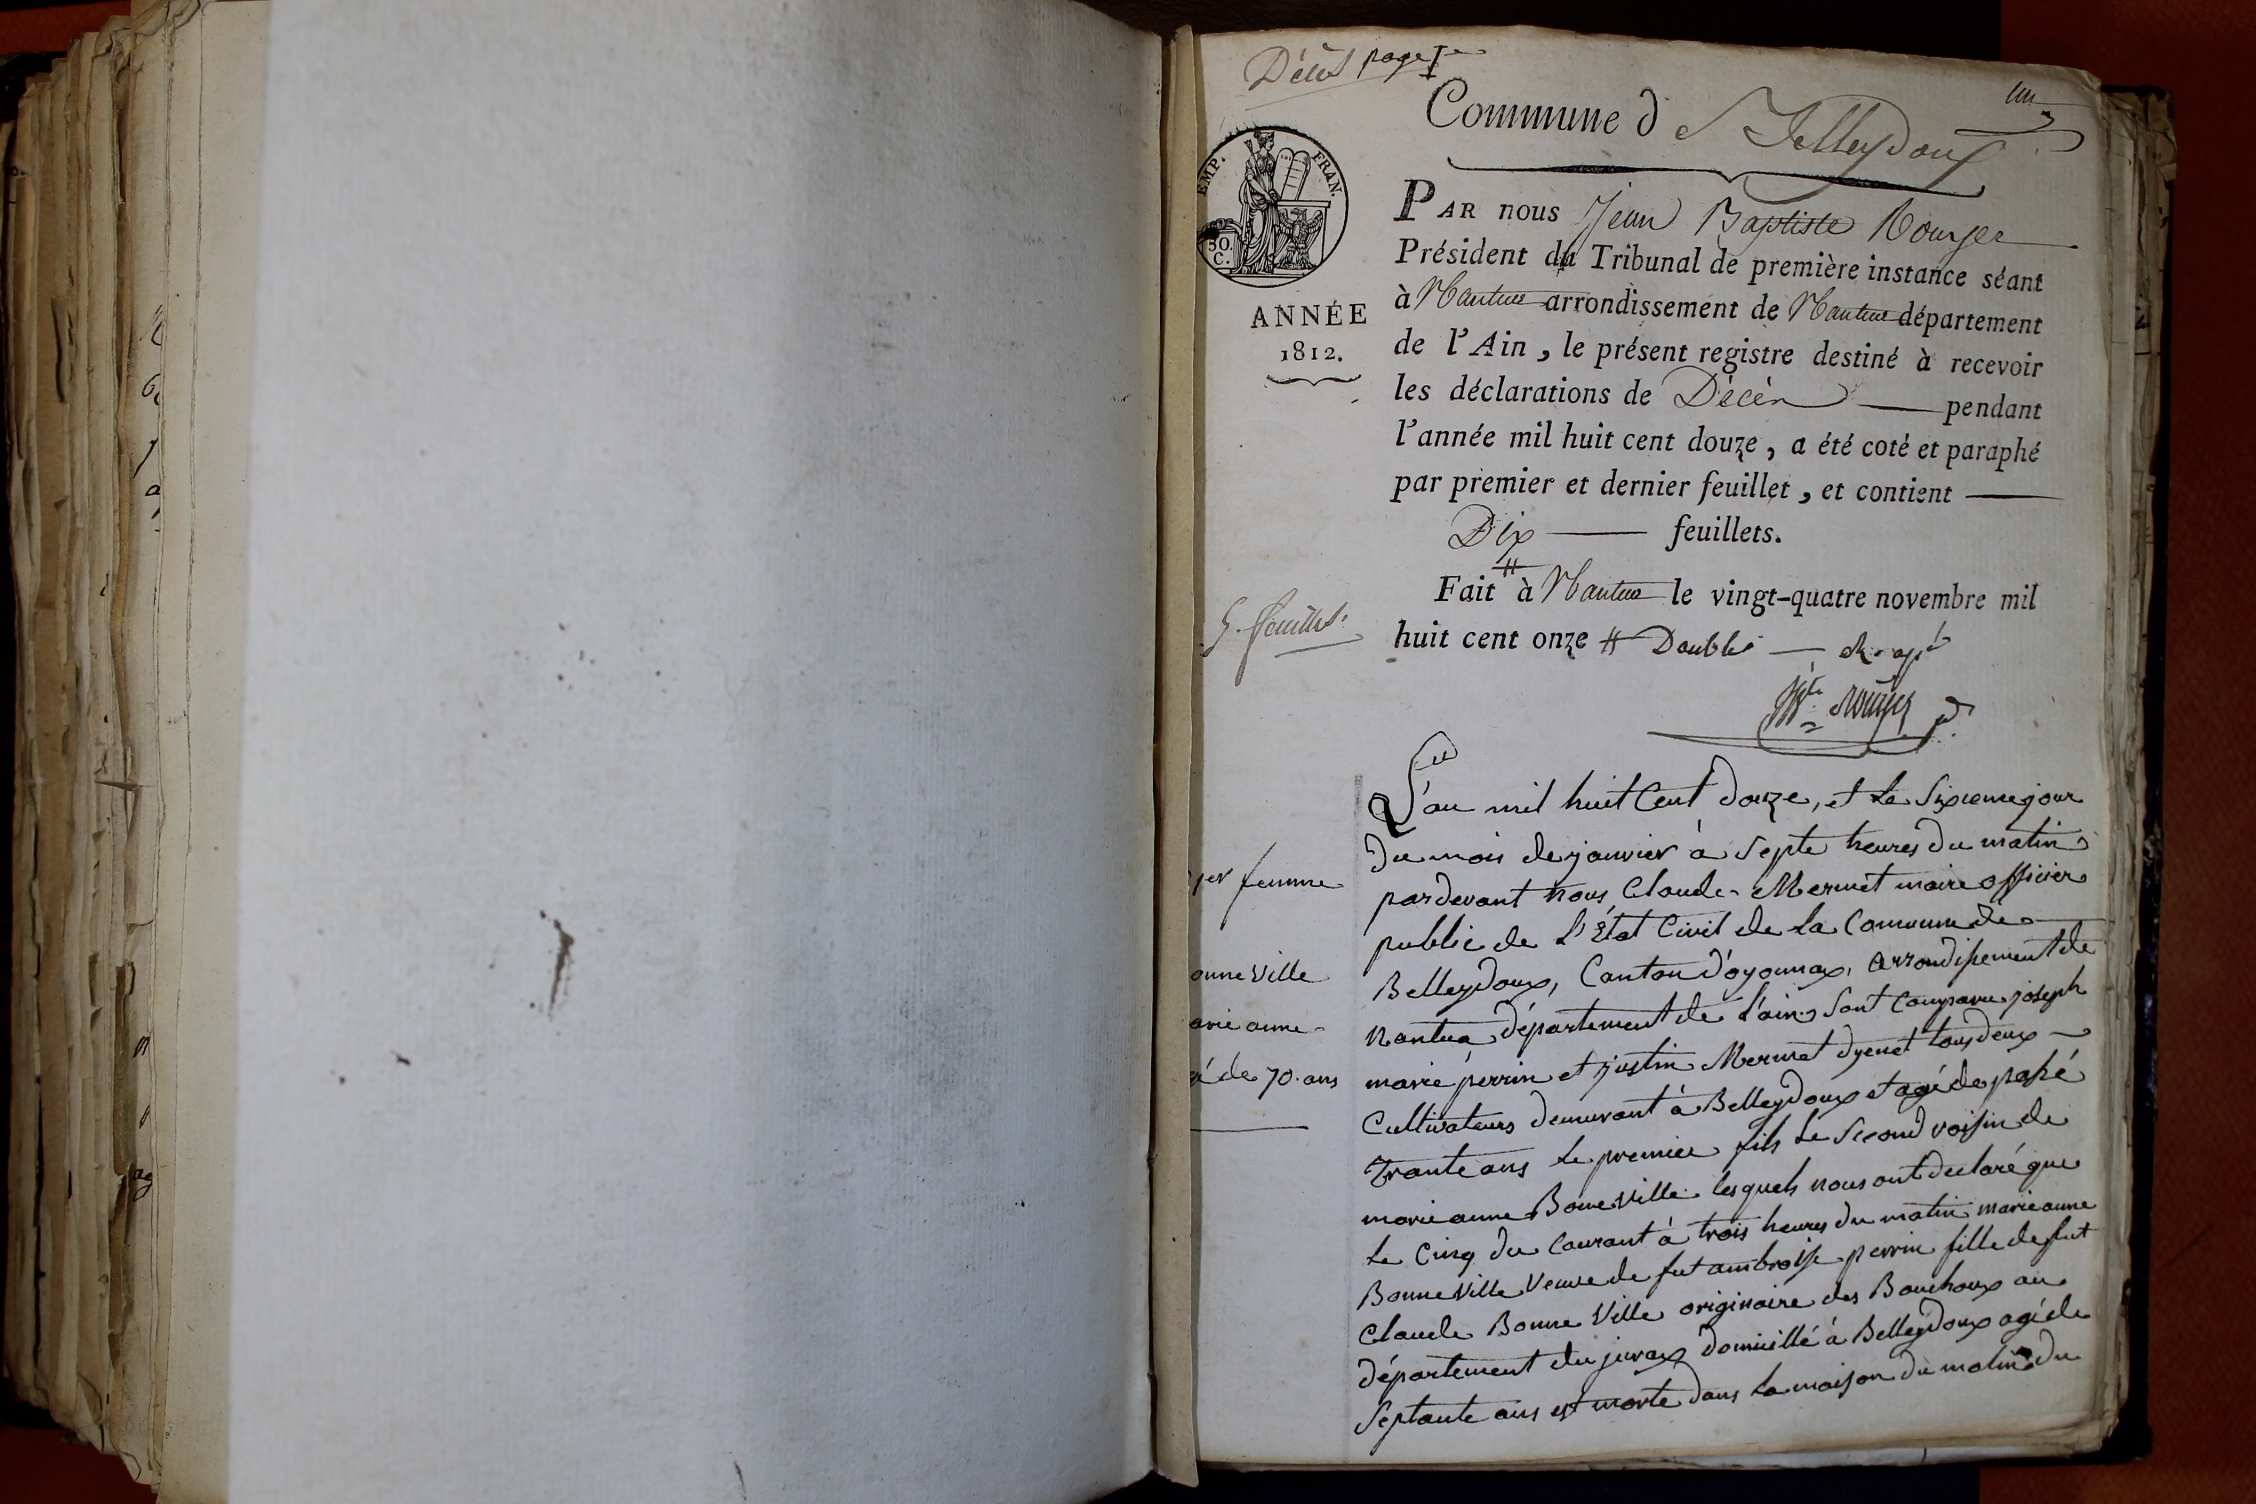 Décès page 1re
un
Commune d Belleydoux
EMP. FRAN.
50.
C.
ANNÉE
1812.
PAR nous Jean Baptiste Rouyer
Président du Tribunal de première instance séant
à Nantua arrondissement de Nantua département
de l'Ain, le présent registre destiné à recevoir
les déclarations de Décès pendant
l'année mil huit cent douze, a été coté et paraphé
par premier et dernier feuillet, et contient
Dix feuillets.
Fait à Nantua le vingt-quatre novembre mil
huit cent onze # Double
5. feuillets.
Rouyer
L'an mil huit Cent douze, et le sixieme jour
du mois de janvier à septe heures du matin
pardevant nous Claude Mermet maire officier
public de L'État Civil de la Commune de
Belleydoux, Canton d'oyonnax, arrondissement de
nantua département de l'ain Sont Comparu joseph
marie perrin et justin Mermet dyenet tous deux
Cultivateurs demeurant à Belleydoux et agé de passé
trante ans le premier fils le Second voisin de
marie anne Bonne Ville lesquels nous ont declaré que
le Cinq du Courant à trois heures du matin marie anne
Bonne Ville Veuve de fut ambroise perrin fille de fut
Claude Bonne Ville originaire des Bouchoux au
département du jurax domicillé à Belleydoux agé de
Septante ans est morte dans la maison du molin du
1er femme
onne Ville
arie anne
gé de 70. ans